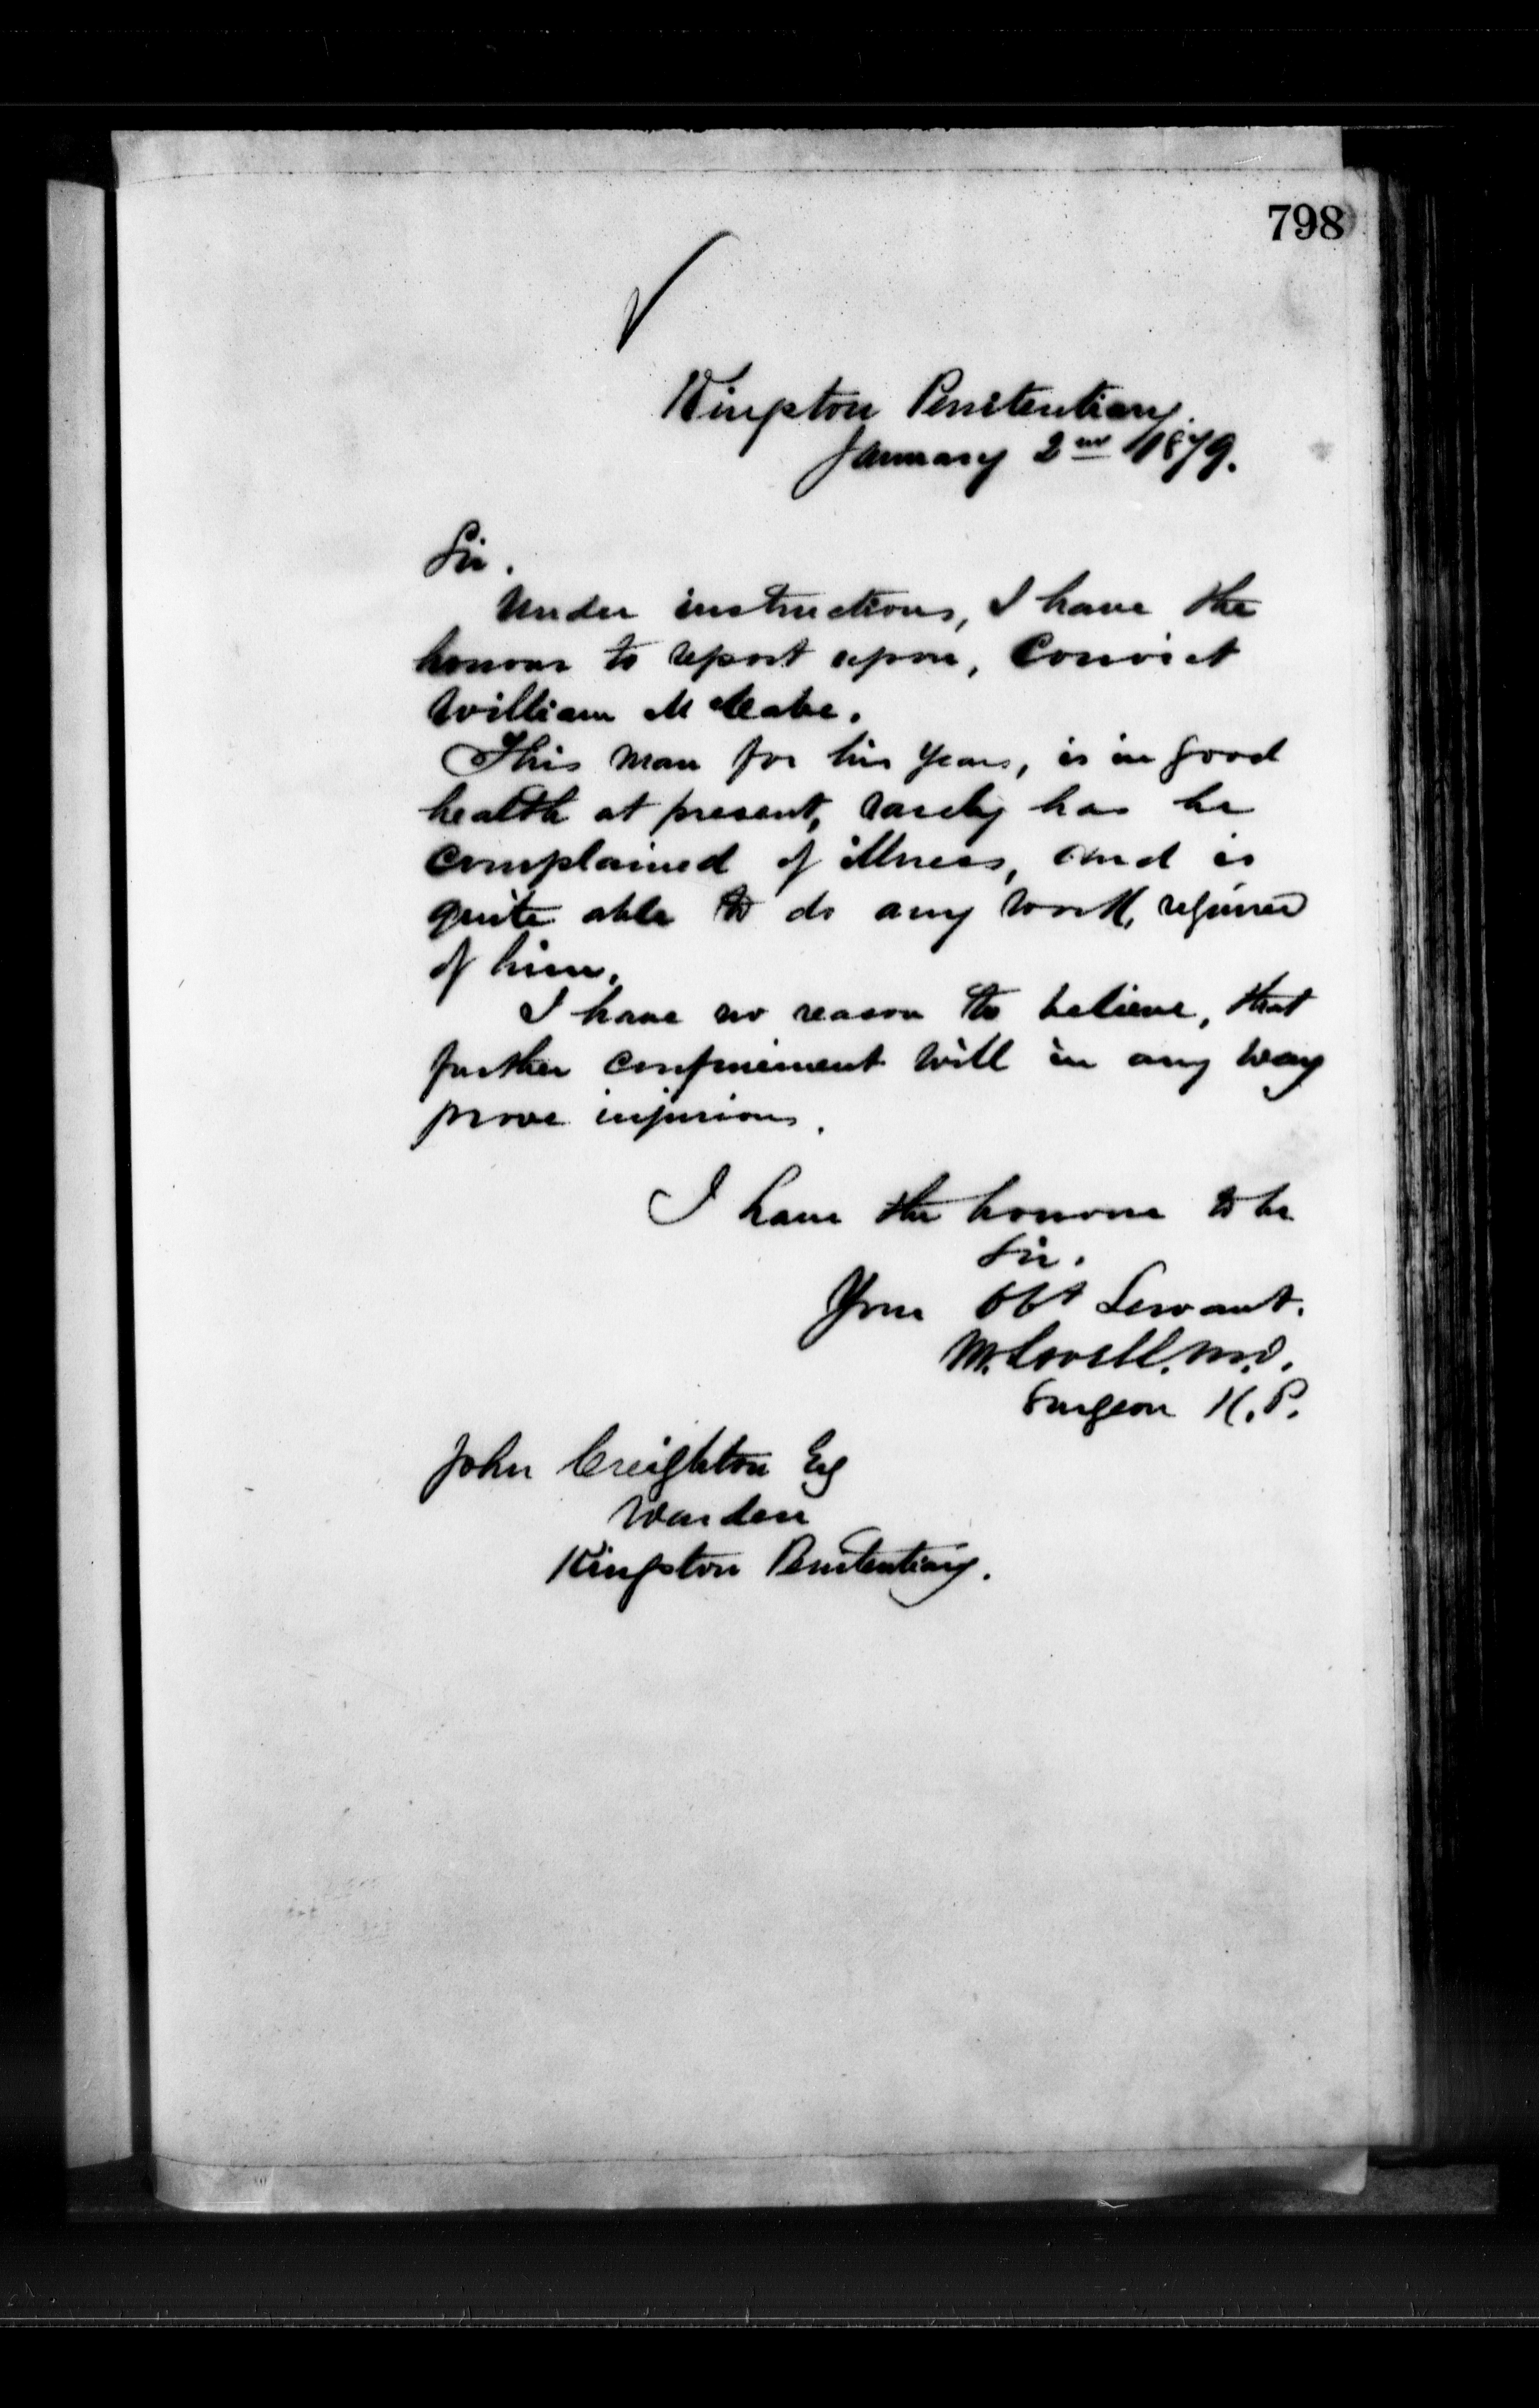 798
Kingston Penitentiary.
January 2nd 1879.
Sir.
Under instructions, I have the
honour to report upon, Convict
William McCabe.
This man for his years, is in good
health at present, rarely has he
complained of illness, and is
quite able to do any work, required
of him.
I have no reason to believe, that
further confinement will in any way
prove injurious.
I have the honour to be
Sir.
Your Obt Servant.
M. Lavell. M.D.
Surgeon K.P.
John Creighton Esq
Warden
Kingston Penitentiary.